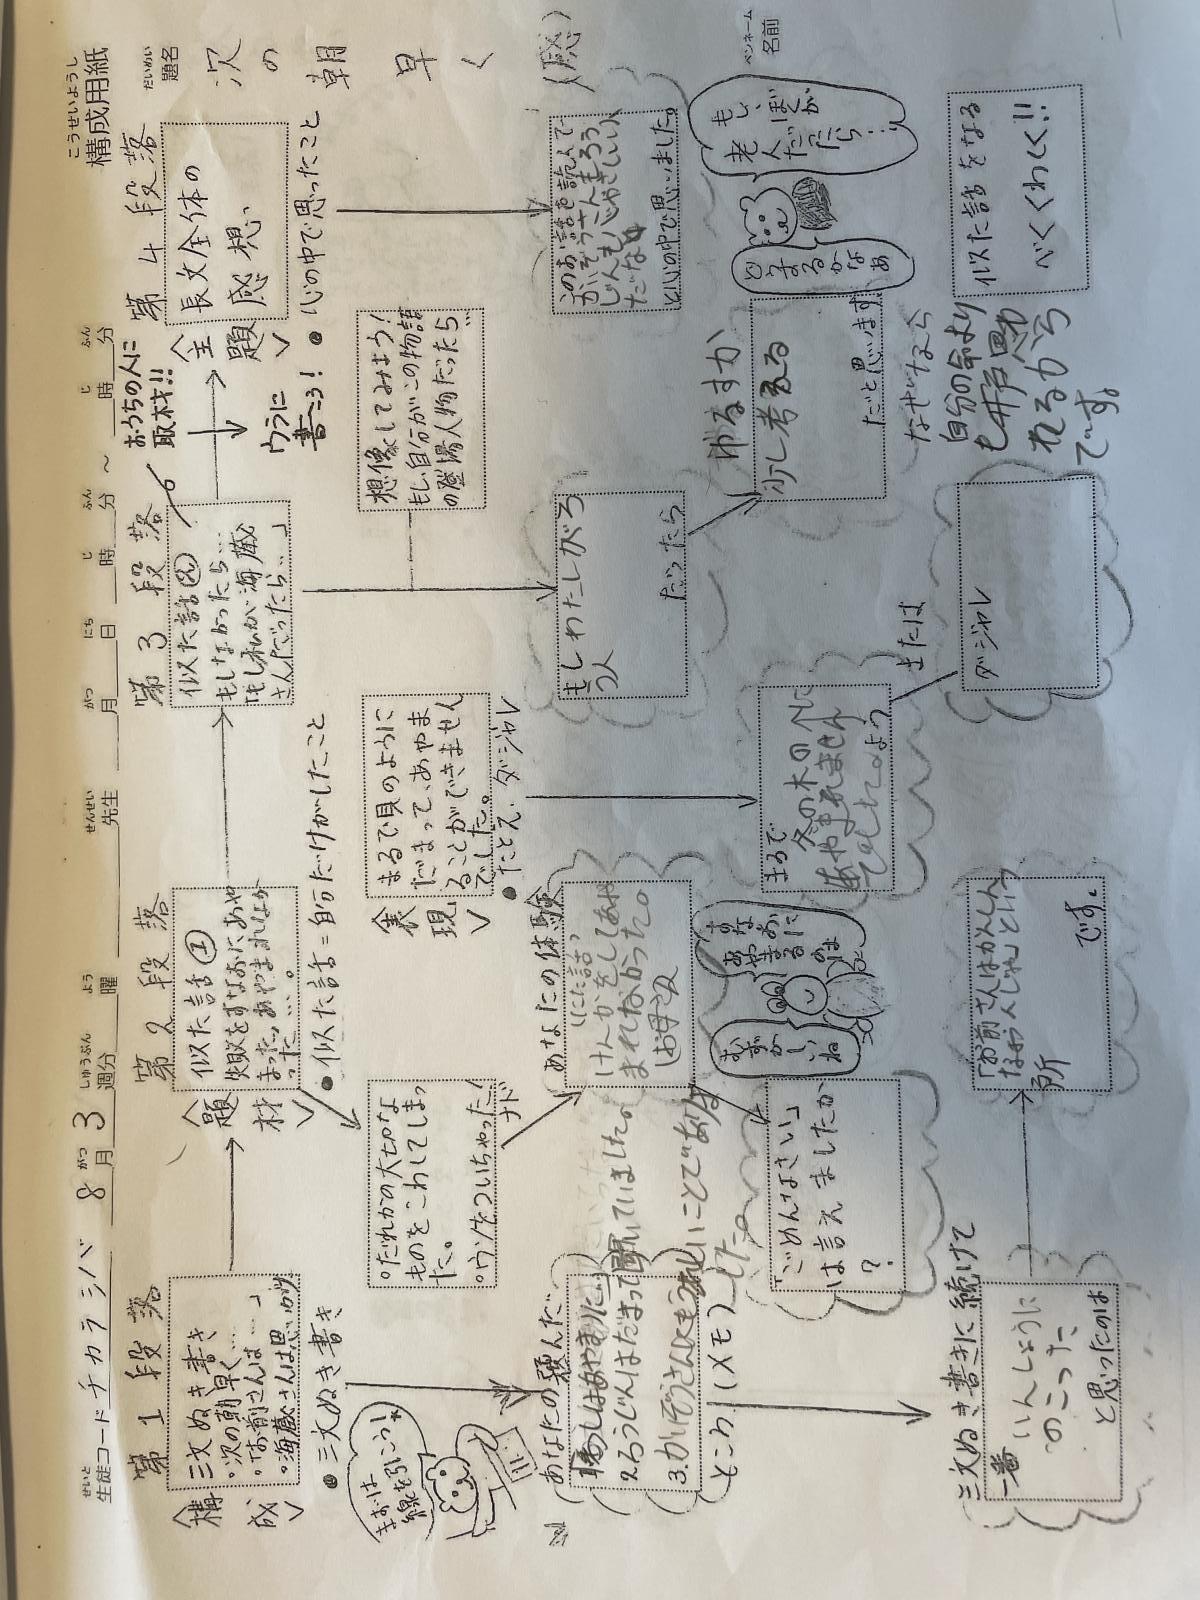 こうせいようし
構成用紙
だいめい
題名
次の朝早く(感)
ペンネーム
名前
せいと
生徒コード チカラシバ
8 がつ 月 3 しゅうぶん 週分
よう
曜
せんせい
先生
がつ 月 にち 日 じ 時 ふん 分 ~ じ 時 ふん 分
第1段落
<構成>
三文ぬき書き
・次の朝早く…
・「お前さんは…」
・海蔵さんは思いがけ
第2段落
<題材>
似た話①
失敗をすなおにあや
まったり、あやまれなか
った…。
第3段落
似た話②
もしなかったら…
「もし私が海蔵
さんだったら…」
おうちの人に
取材!!
第4段落
<主題>
長文全体の
感想
ウラに
書こう!
● 三文ぬき書き
まずは
線を引こう!
あなたの選んだ…
2.ろうじんはだまって聞いていました。
ところ (メモ)
三文ぬき書きに続けて
一番いんしょうに
のこった
と思ったのは
「お前さんはかんしん
という
所
です。
● 似た話=自分だけがしたこと
○だれかの大切な
ものをこわしてしまっ
た。
○ウソをついちゃった!
ナド
あなたの体験
(にた話)
けんかをしてあや
まれなかった。
(お母さん)
すなおに
あやまる
のは
むずかしい
ね
「ごめんなさい」
は言えましたか
?
<表現>
まるで貝のように
だまって、あやま
ることができません
でした。
● たとえ・ダジャレ
まるで
冬の木の
あやまれません
でした。よう
または
ダジャレ
想像してみよう!
もし、自分がこの物語
の登場人物だったら…
もしわたしがろう人
だったら
ゆるすか
少し考える
だと思います
なぜなら
自分の命より
も井戸
れるから
です。
● 心の中で思ったこと
このお話を読んで
と心の中で思いました。
もし、ぼくが
老人
だったら…
どうするかなあ
似た話をなる
べくくわしく!!